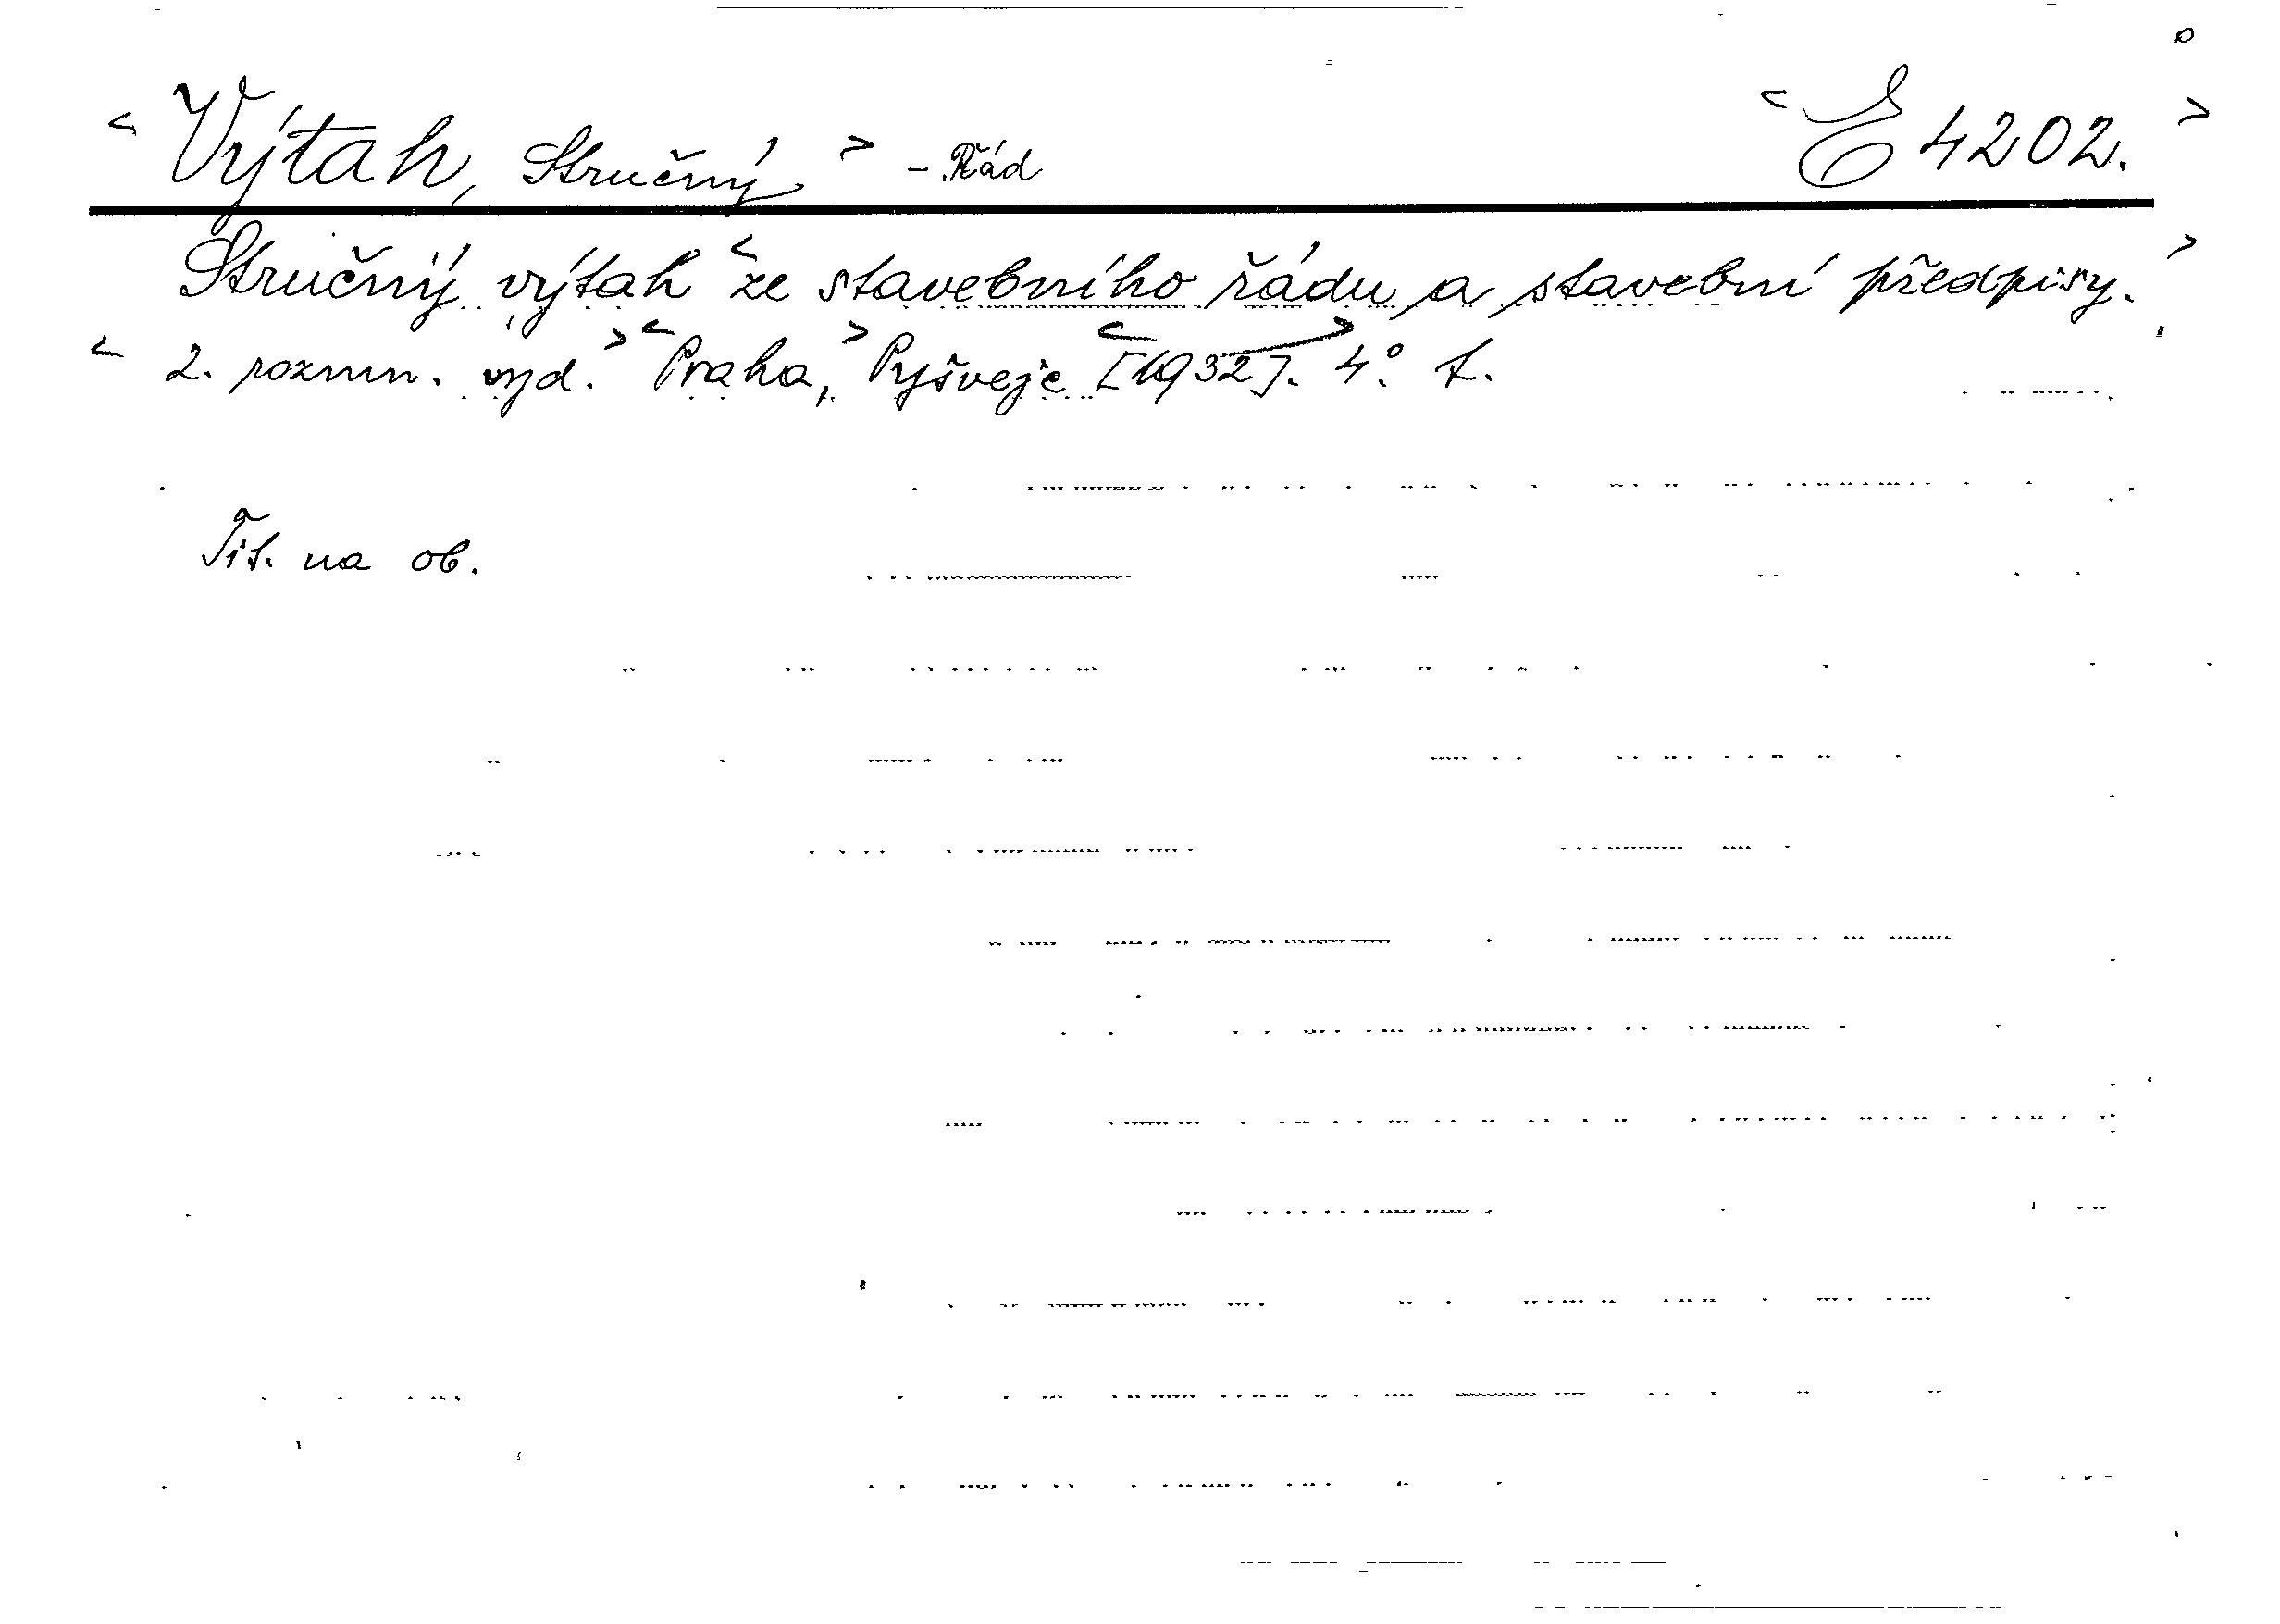 < Výtah, Stručný > - Řád < E 4202. >
Stručný výtah < ze stavebního řádu a stavební předpisy. >
< 2. rozmn. vyd. > < Praha, > Pyšveje < [1932]. > 4°. f.
Tit. na ob.